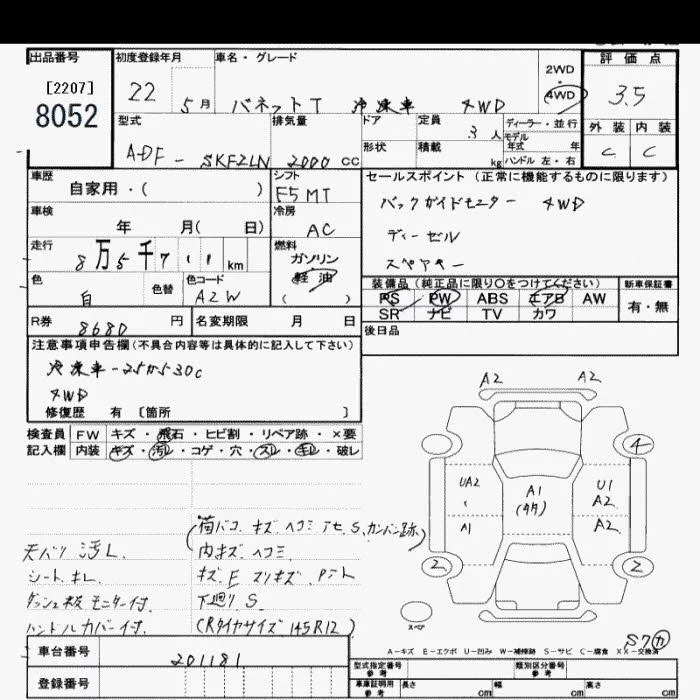 出品番号 初度登録年月 車名・グレード 2WD・4WD 評価点
[2207]
8052
22 5月 バネットT 冷凍車 4WD 3.5
型式 排気量 ドア 定員 ディーラー・並行 外装 内装
ADF-SKF2LN 2000cc 3人 モデル年式 年 C C
形状 積載 kg ハンドル 左・右
車歴 シフト セールスポイント (正常に機能するものに限ります)
自家用・( ) F5MT
バックガイドモニター 4WD
車検 冷房
年 月( 日) AC
ディーゼル
走行 燃料
8万5千7 km ガソリン
軽油
( )
スペアキー
色 色替 色コード
白 A2W
装備品 (純正品に限り○をつけてください) 新車保証書
PS PW ABS エアB AW 有・無
SR ナビ TV カワ
R券 8680円 名変期限 月 日
後日品
注意事項申告欄(不具合内容等は具体的に記入して下さい)
4WD
修復歴 有 〔箇所 〕
検査員 FW キズ・飛石・ヒビ割・リペア跡・×要
記入欄 内装 キズ・汚レ・コゲ・穴・スレ・キレ・破レ
A2 A2
4
UA2 A1 U1
A2
A1 A2
2 2
スペア
(荷バコ キズ ヘコミ S,カンバン跡)
天バリ 汚レ 内キズ ヘコミ
シート キレ キズ E スリキズ
ダッシュ板 モニター付 下廻リ S
ハンドルカバー付 (Rタイヤサイズ 145R12)
A-キズ E-エクボ U-凹み W-補修跡 S-サビ C-腐食 XX-交換済
車台番号 201181
登録番号
型式指定番号 参考 類別区分番号 参考
車庫証明用 参考 長さ cm 幅 cm 高さ cm